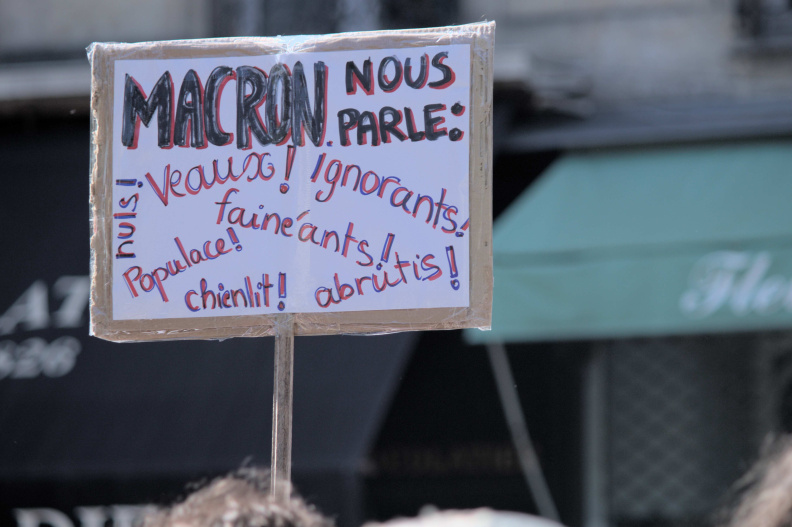 MACRON NOUS
PARLE:
Veaux! Ignorants!
nuls!
fainéants!
Populace!
chienlit! abrutis!
826